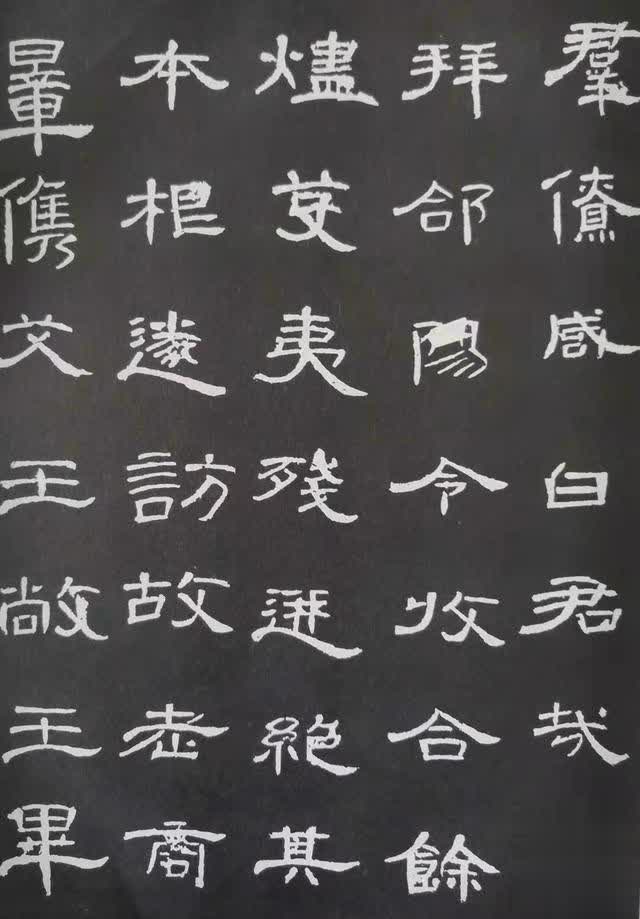 羣僚咸曰君哉
拜郃陽令收合餘
燼芟夷殘迸絕其
本根遂訪故老商
量儁艾王敞王畢